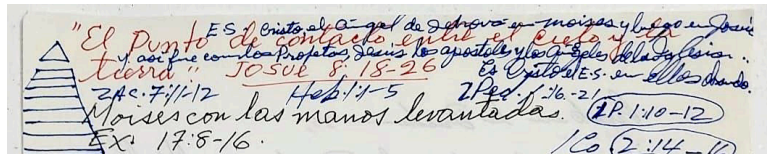 E.S. Cristo, el Angel de Jehova en moises y luego en Josue
"El Punto de contacto entre el cielo y la
y asi fue con los Profetas, Jesus, los apostoles y los Angeles de la Iglesia..
tierra" JOSUE 8:18-26
Es Cristo el E.S. en ellos obrando.
ZAC:7:11-12 Heb:1:1-5 2Ped. 1:16-21
Moises con las manos levantadas. 1P. 1:10-12
EX: 17:8-16. 1Co 2:14-